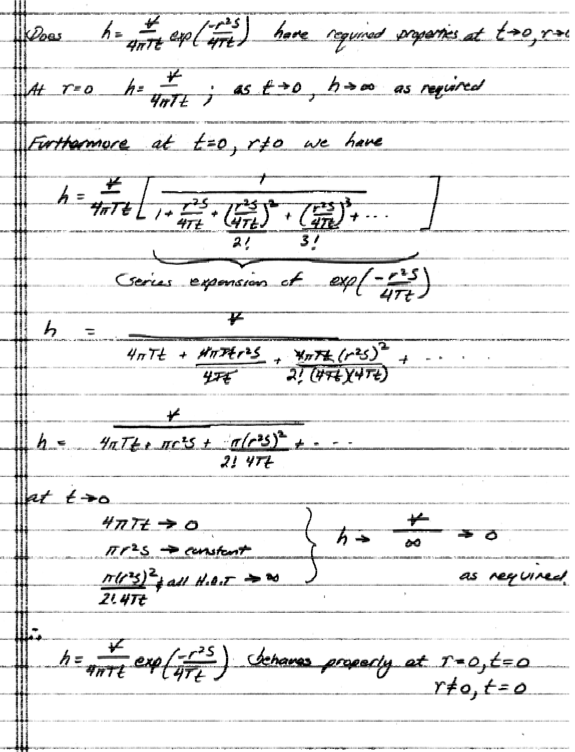 Does h = V/4πTt exp(-r²S/4Tt) have required properties at t→0, r→0
At r=0 h = V/4πTt ; as t→0, h→∞ as required
Furthermore at t=0, r≠0 we have
h = V/4πTt [ 1 / (1 + r²S/4Tt + (r²S/4Tt)²/2! + (r²S/4Tt)³/3! + ...) ]
series expansion of exp(-r²S/4Tt)
h = V / (4πTt + 4πTt r²S/4Tt + 4πTt (r²S)²/2! (4Tt)(4Tt) + ....
h = V / (4πTt + πr²S + π(r²S)²/2! 4Tt + - - -
at t→0
4πTt → 0
πr²S → constant
π(r²S)²/2! 4Tt & all H.O.T → ∞
} h → V/∞ → 0
as required.
∴
h = V/4πTt exp(-r²S/4Tt) behaves properly at r=0, t=0
r≠0, t=0